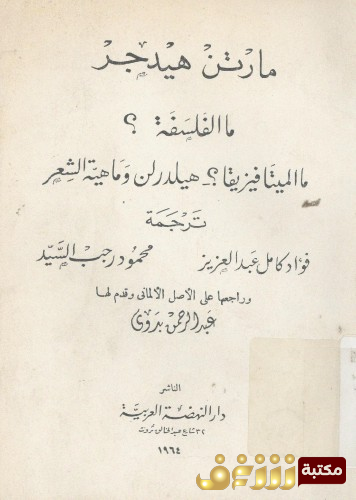 مارتن هيدجر
ما الفلسفة ؟
ما الميتافيزيقا ؟ ـ هيلدرلن وماهية الشعر
ترجمة
فؤاد كامل عبد العزيز محمود رجب السيد
وراجعها على الأصل الألمانى وقدم لها
عبد الرحمن بدوى
الناشر
دار النهضة العربية
٣٢ شارع عبد الخالق ثروت
١٩٦٤
مكتبة